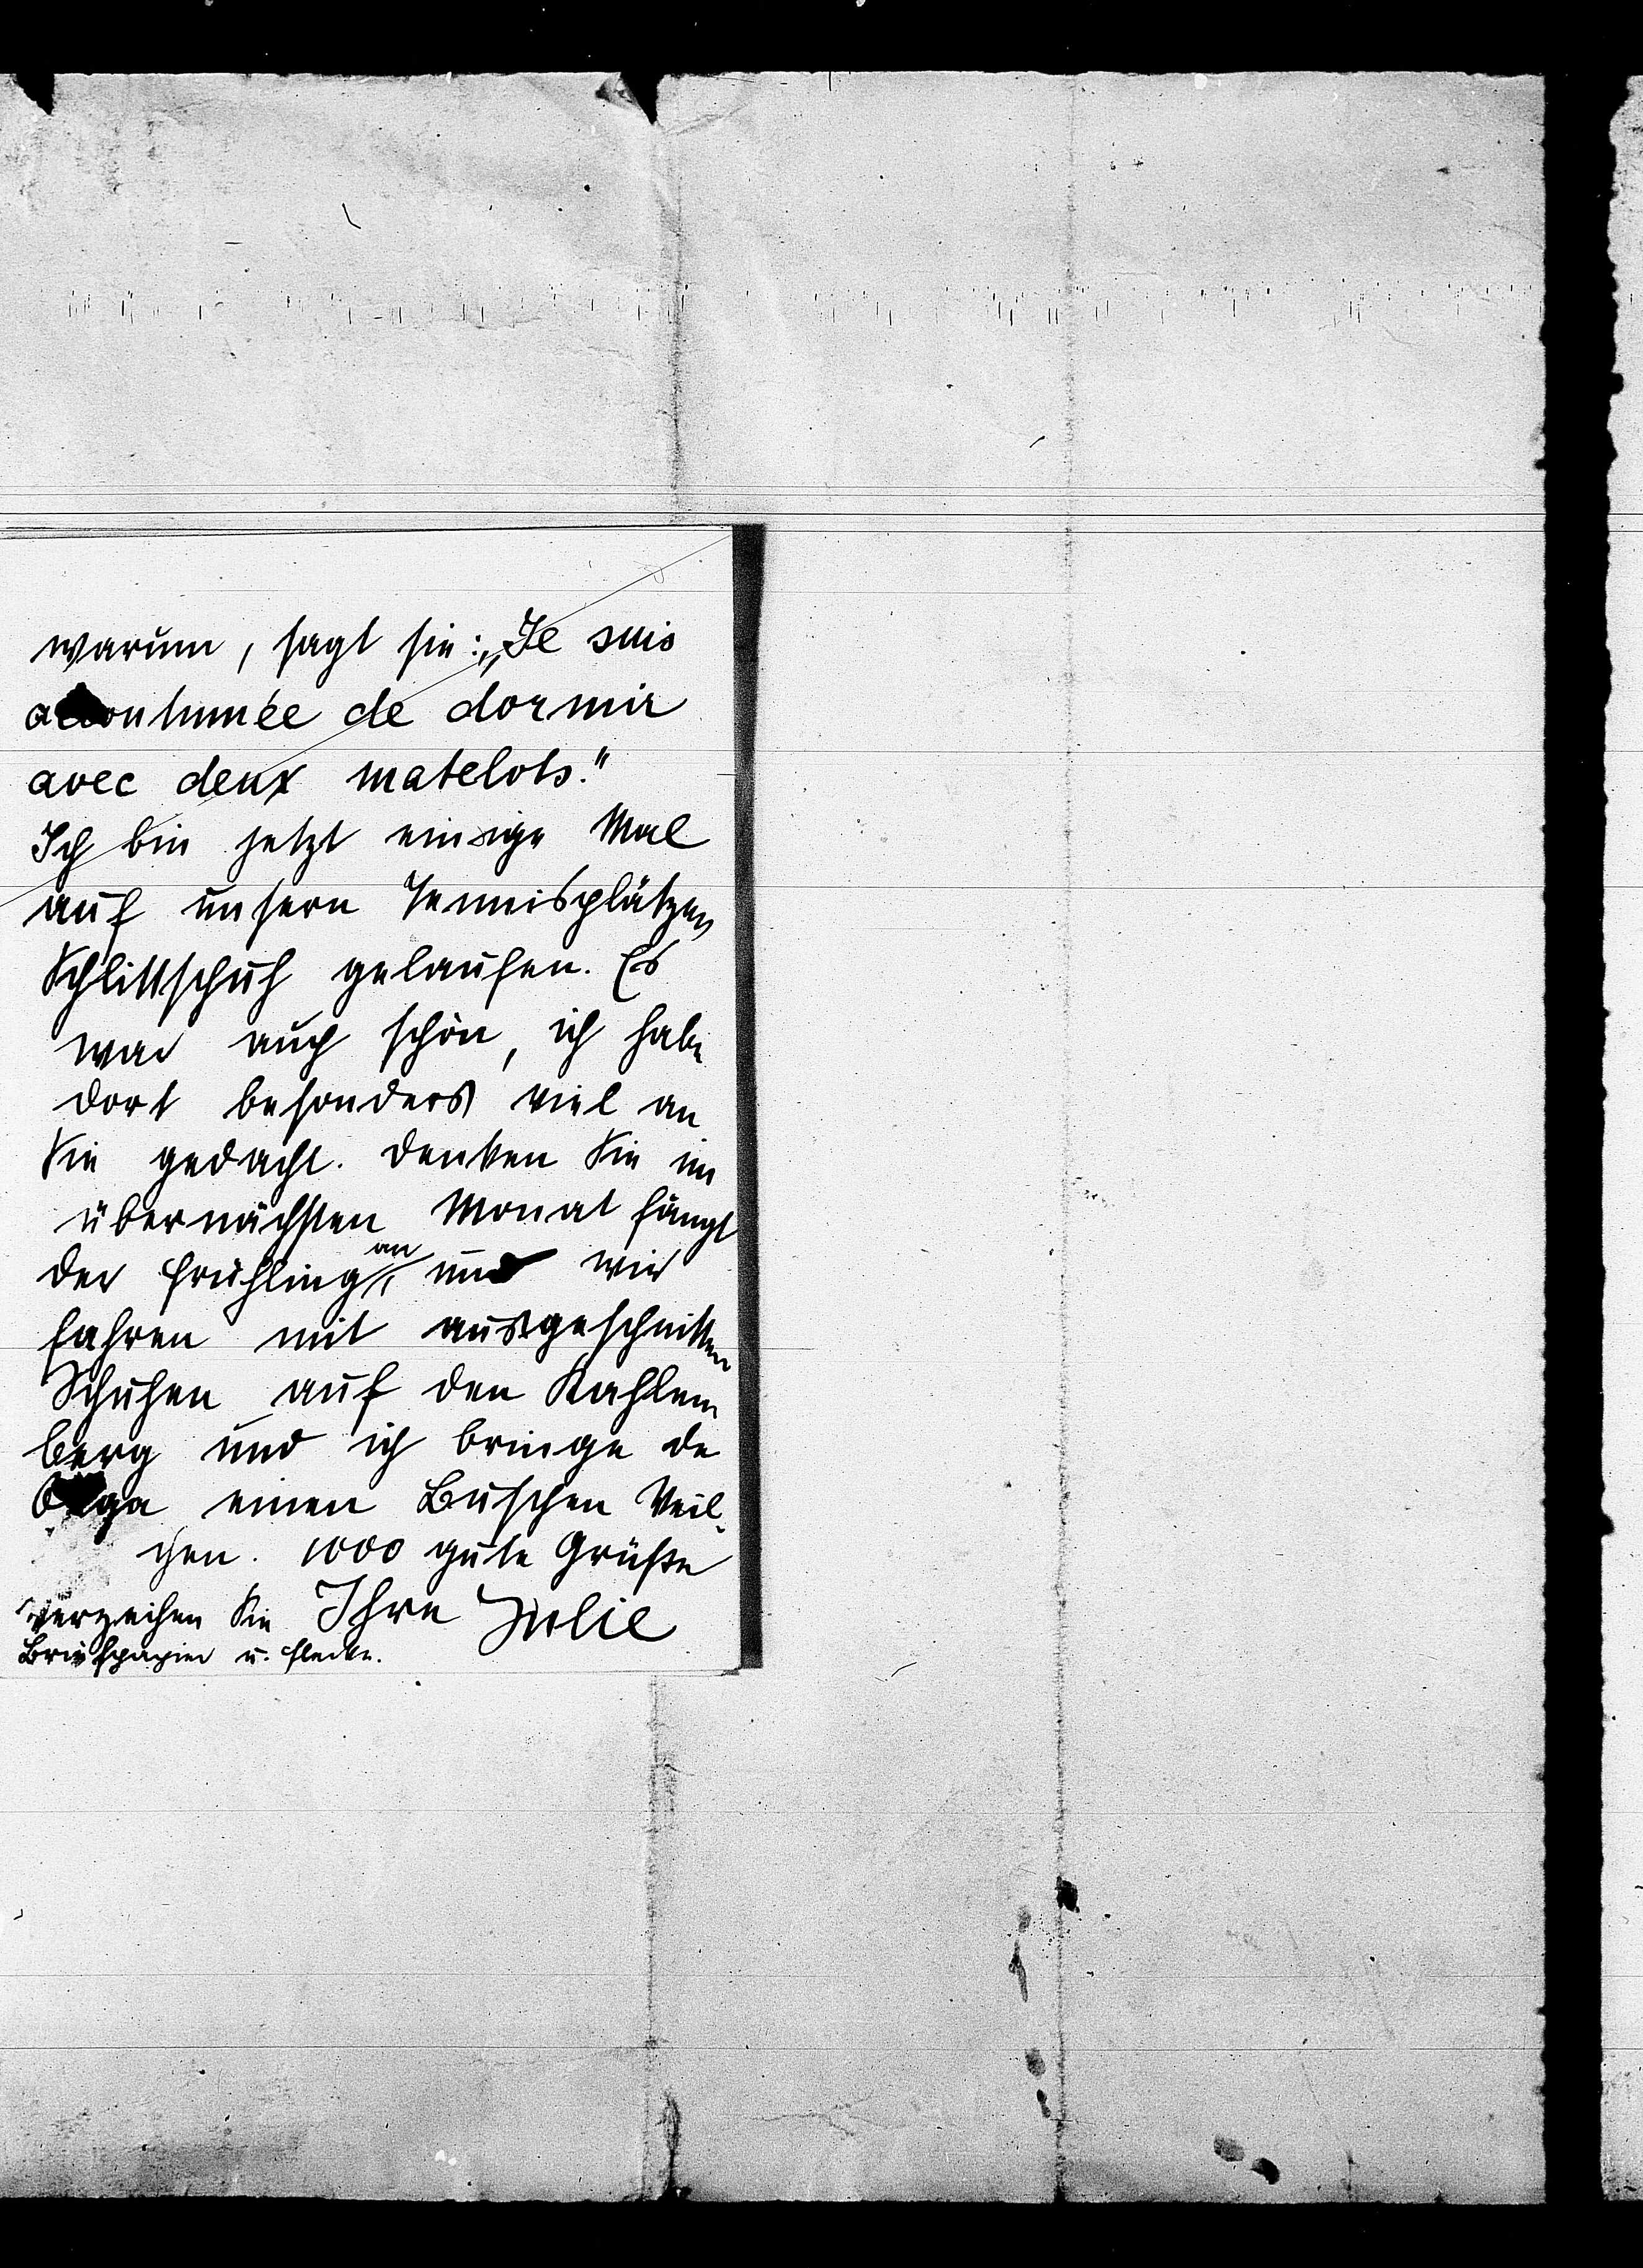 warum, sagt sie: „Je suis
accoutumée de dormir
avec deux matelots."
Ich bin jetzt einige Mal
auf unsern Tennisplätzen
Schlittschuh gelaufen. Es
war auch schön, ich habe
dort besonders viel an
Sie gedacht. Denken Sie im
übernächsten Monat fängt
der Frühling an, und wir
fahren mit ausgeschnitten
Schuhen auf den Kahlen
berg und ich bringe de
Olga einen Buschen Veil-
chen. 1000 gute Grüße
Ihre Julie
Verzeihen Sie
Briefpapier u. Flecke.